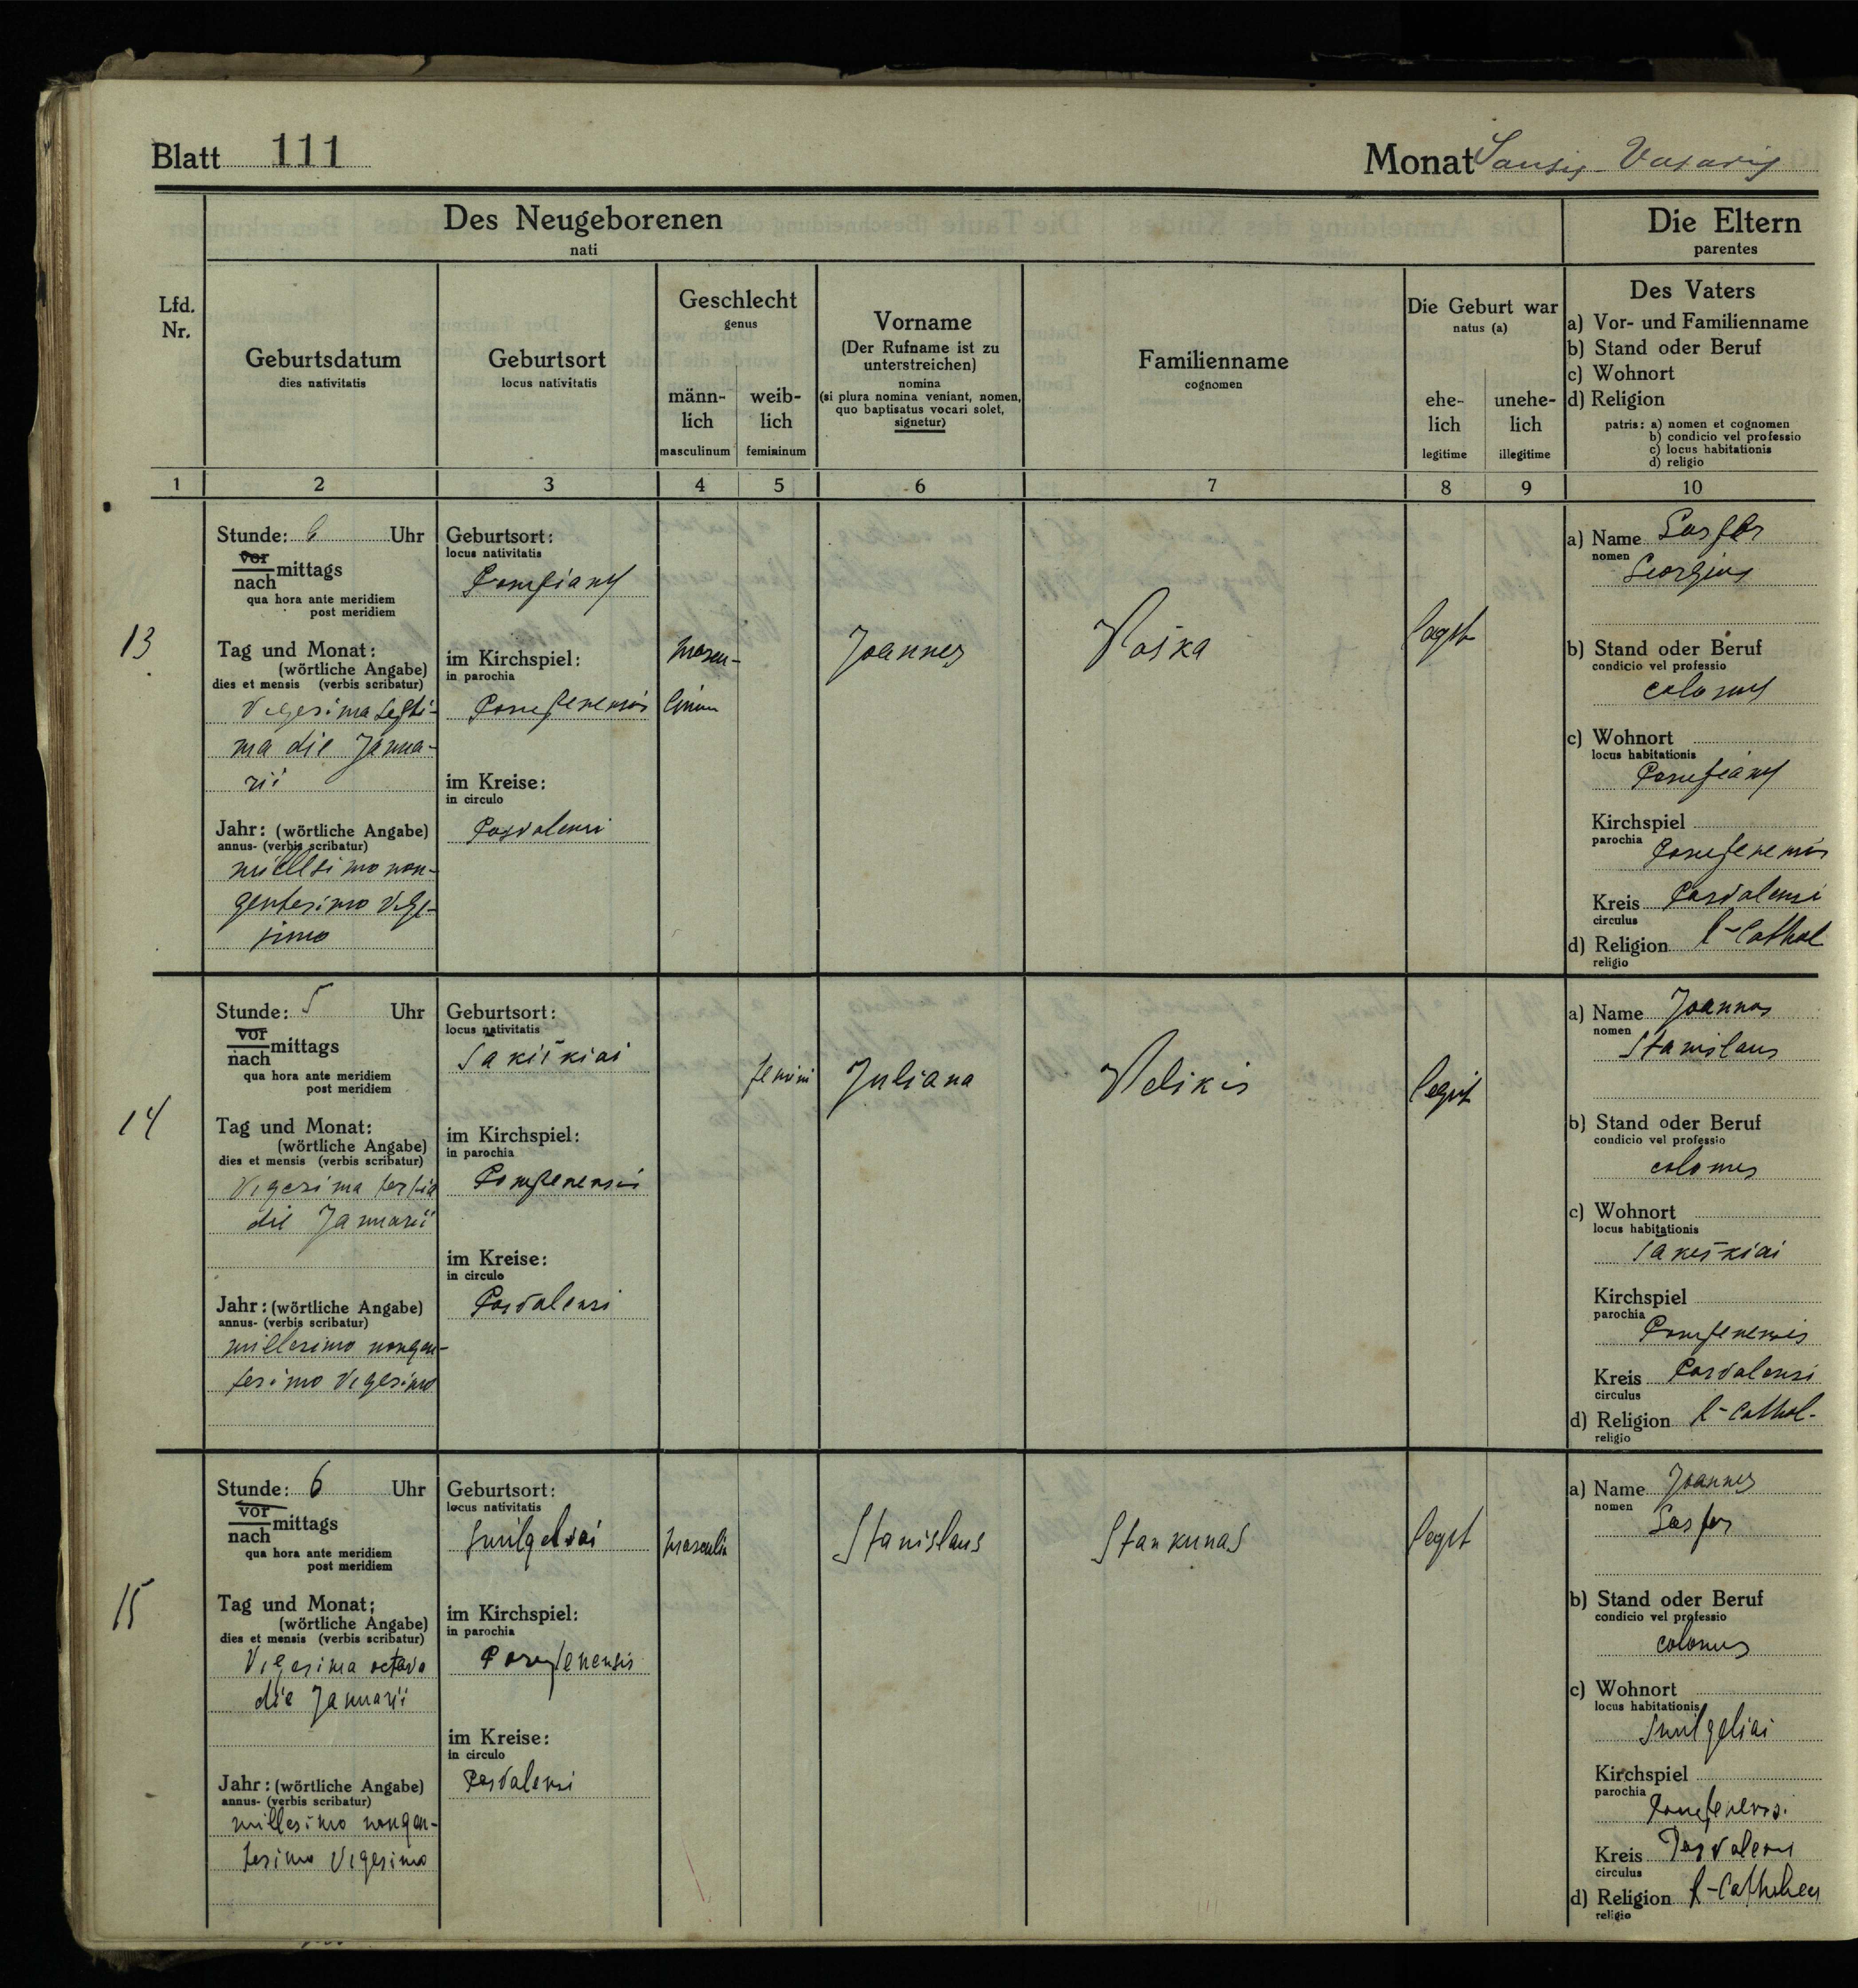 Blatt 111
Monat Sausis - Vasaris
Des Neugeborenen
nati
Die Eltern
parentes
Lfd.
Nr.
Geburtsdatum
dies nativitatis
Geburtsort
locus nativitatis
Geschlecht
genus
männ-
lich
masculinum
weib-
lich
femininum
Vorname
(Der Rufname ist zu
unterstreichen)
nomina
(si plura nomina veniant, nomen,
quo baptisatus vocari solet,
signetur)
Familienname
cognomen
Die Geburt war
natus (a)
ehe-
lich
legitime
unehe-
lich
illegitime
Des Vaters
a) Vor- und Familienname
b) Stand oder Beruf
c) Wohnort
d) Religion
patris: a) nomen et cognomen
b) condicio vel professio
c) locus habitationis
d) religio
1 2 3 4 5 6 7 8 9 10
13
Stunde: 6 Uhr
vor
nach mittags
qua hora ante meridiem
post meridiem
Tag und Monat:
(wörtliche Angabe)
dies et mensis (verbis scribatur)
Vigesima septi-
ma die Janua-
rii
Jahr: (wörtliche Angabe)
annus- (verbis scribatur)
millesimo non-
gentesimo vige-
simo
Geburtsort:
locus nativitatis
im Kirchspiel:
in parochia
im Kreise:
in circulo
Posvalensi
mascu-
linum
Joannes
Vaška
legit
a) Name
nomen
Georgius
b) Stand oder Beruf
condicio vel professio
colonus
c) Wohnort
locus habitationis
Kirchspiel
parochia
Kreis Posvalensi
circulus
d) Religion r-Cathol
religio
14
Stunde: 5 Uhr
vor
nach mittags
qua hora ante meridiem
post meridiem
Tag und Monat:
(wörtliche Angabe)
dies et mensis (verbis scribatur)
Vigesima tertia
die Januarii
Jahr: (wörtliche Angabe)
annus- (verbis scribatur)
millesimo nongen-
tesimo Vigesimo
Geburtsort:
locus nativitatis
Sakiškiai
im Kirchspiel:
in parochia
im Kreise:
in circulo
Posvalensi
femini
Juliana
Velikis
legit
a) Name Joannes
nomen
Stanislaus
b) Stand oder Beruf
condicio vel professio
colonus
c) Wohnort
locus habitationis
Sakiškiai
Kirchspiel
parochia
Kreis Posvalensi
circulus
d) Religion r-Cathol.
religio
15
Stunde: 6 Uhr
vor
nach mittags
qua hora ante meridiem
post meridiem
Tag und Monat:
(wörtliche Angabe)
dies et mensis (verbis scribatur)
Vigesima octava
die Januarii
Jahr: (wörtliche Angabe)
annus- (verbis scribatur)
millesimo nongen-
tesimo Vigesimo
Geburtsort:
locus nativitatis
Smilgeliai
im Kirchspiel:
in parochia
im Kreise:
in circulo
Posvalensi
masculin
Stanislaus
Stankunas
legit
a) Name Joannes
nomen
b) Stand oder Beruf
condicio vel professio
colonus
c) Wohnort
locus habitationis
Smilgeliai
Kirchspiel
parochia
Kreis Posvalensi
circulus
d) Religion
religio